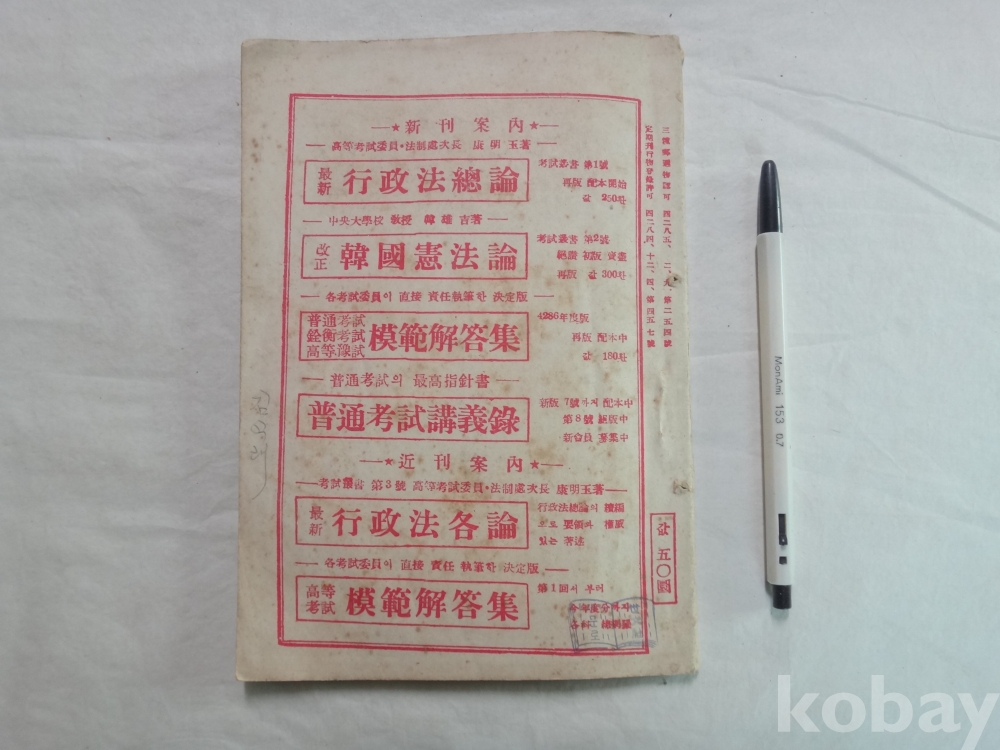 新刊案內
高等考試委員·法制處次長 康明玉著
最新 行政法總論
考試叢書 第1號
再版 配本開始
값 250환
中央大學校 敎授 韓雄吉著
改正 韓國憲法論
考試叢書 第2號
絕讚 初版 賣盡
再版 값 300환
各考試委員이 直接 責任執筆한 決定版
普通考試
銓衡考試
高等豫試
模範解答集
4286年度版
再版 配本中
값 180환
普通考試의 最高指針書
普通考試講義錄
新版 7號까지 配本中
第8號 組版中
新會員 募集中
近刊案內
考試叢書 第3號 高等考試委員·法制處次長 康明玉著
最新 行政法各論
行政法總論의 續編
으로 要領과 權威
있는 著述
各考試委員이 直接 責任 執筆한 決定版
高等考試 模範解答集
第1回서 부터
今年度分까지
各科 總網羅
三種郵便物認可 四二八五、二、九、第二五四號
定期刊行物登錄許可 四二八四、十二、四、第四五七號
값 五〇圜
MonAmi 153 0.7
kobay